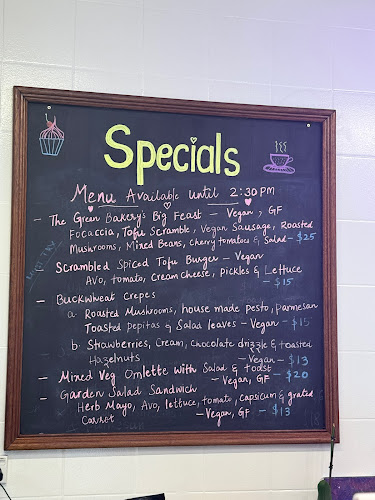 Specials
Menu Available until 2:30 PM
- The Green Bakery's Big Feast - Vegan, GF
Focaccia, Tofu Scramble, Vegan Sausage, Roasted
Mushrooms, Mixed Beans, Cherry tomatoes & Salad - $25
Scrambled Spiced Tofu Burger - Vegan
Avo, tomato, Cream Cheese, Pickles & Lettuce
- $15
- Buckwheat Crepes
a. Roasted Mushrooms, house made pesto, Parmesan
Toasted Pepitas & Salad leaves - Vegan - $15
b. Strawberries, Cream, Chocolate drizzle & toasted
Hazelnuts - Vegan - $13
- Mixed Veg Omlette with Salad & toast
- Vegan, GF - $20
- Garden Salad Sandwich
Herb Mayo, Avo, lettuce, tomato, capsicum & grated
Carrot - Vegan, GF - $13